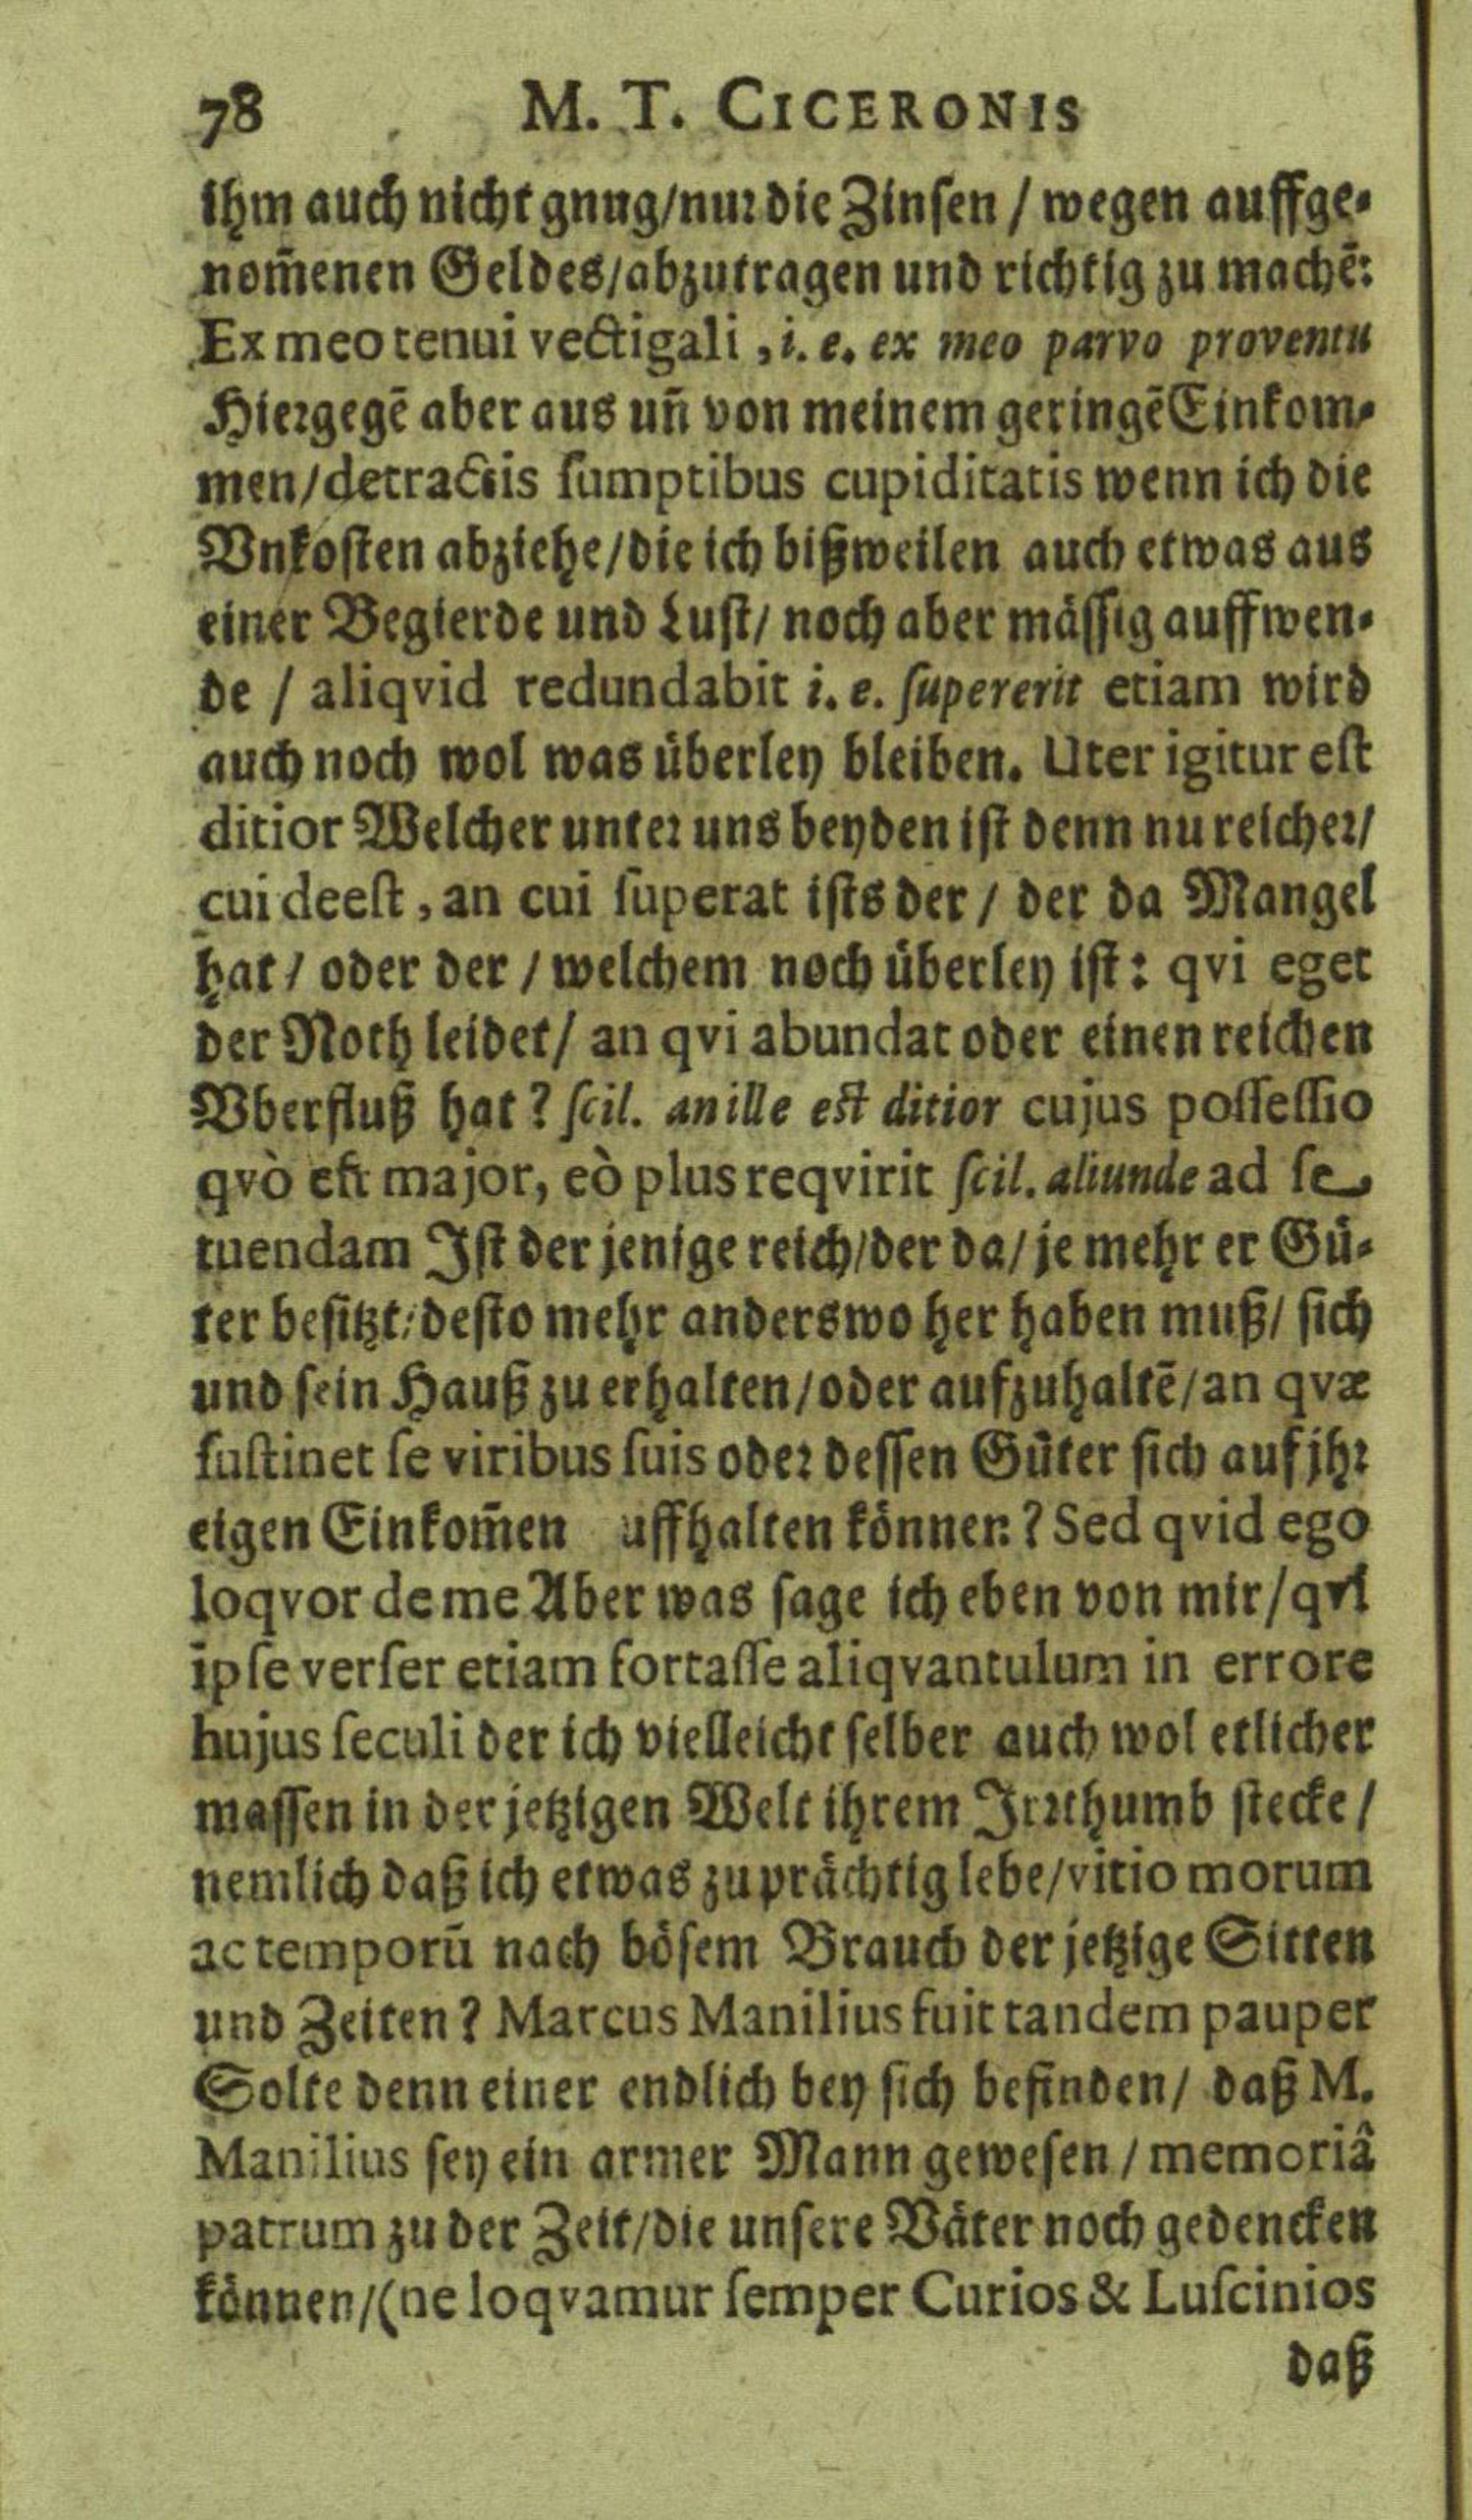 78 M. T. CICERONIS
ihm auch nicht gnug/nur die Zinsen / wegen auffge-
nom̃enen Geldes/abzutragen und richtig zu machẽ:
Ex meo tenui vectigali, i. e. ex meo parvo proventu
Hiergegẽ aber aus uñ von meinem geringẽ Einkom-
men/detractis ſumptibus cupiditatis wenn ich die
Vnkoſten abziehe/die ich bißweilen auch etwas aus
einer Begierde und Luſt/ noch aber mäſſig auffwen-
de / aliqvid redundabit i. e. ſupererit etiam wird
auch noch wol was überley bleiben. Uter igitur eſt
ditior Welcher unter uns beyden iſt denn nu reicher/
cui deeſt, an cui ſuperat iſts der / der da Mangel
hat / oder der / welchem noch überley iſt: qvi eget
der Noth leidet/ an qvi abundat oder einen reichen
Vberfluß hat? ſcil. an ille eſt ditior cujus poſſeſſio
qvò eſt major, eò plus reqvirit ſcil. aliunde ad ſe
tuendam Iſt der jenige reich/der da/ je mehr er Gü-
ter beſitzt/deſto mehr anderswo her haben muß/ ſich
und ſein Hauß zu erhalten/oder aufzuhaltẽ/an qvæ
ſuſtinet ſe viribus ſuis oder deſſen Güter ſich auf jhr
eigen Einkom̃en uffhalten können? Sed qvid ego
loqvor de me Aber was ſage ich eben von mir/qvi
ipſe verſer etiam fortaſſe aliqvantulum in errore
hujus ſeculi der ich vielleicht ſelber auch wol etlicher
maſſen in der jetzigen Welt ihrem Irrthumb ſtecke /
nemlich daß ich etwas zu prächtig lebe/vitio morum
ac temporũ nach böſem Brauch der jetzige Sitten
und Zeiten? Marcus Manilius fuit tandem pauper
Solte denn einer endlich bey ſich befinden/ daß M.
Manilius ſey ein armer Mann geweſen / memoriâ
patrum zu der Zeit/die unſere Väter noch gedencken
können/(ne loqvamur ſemper Curios & Luſcinios
daß